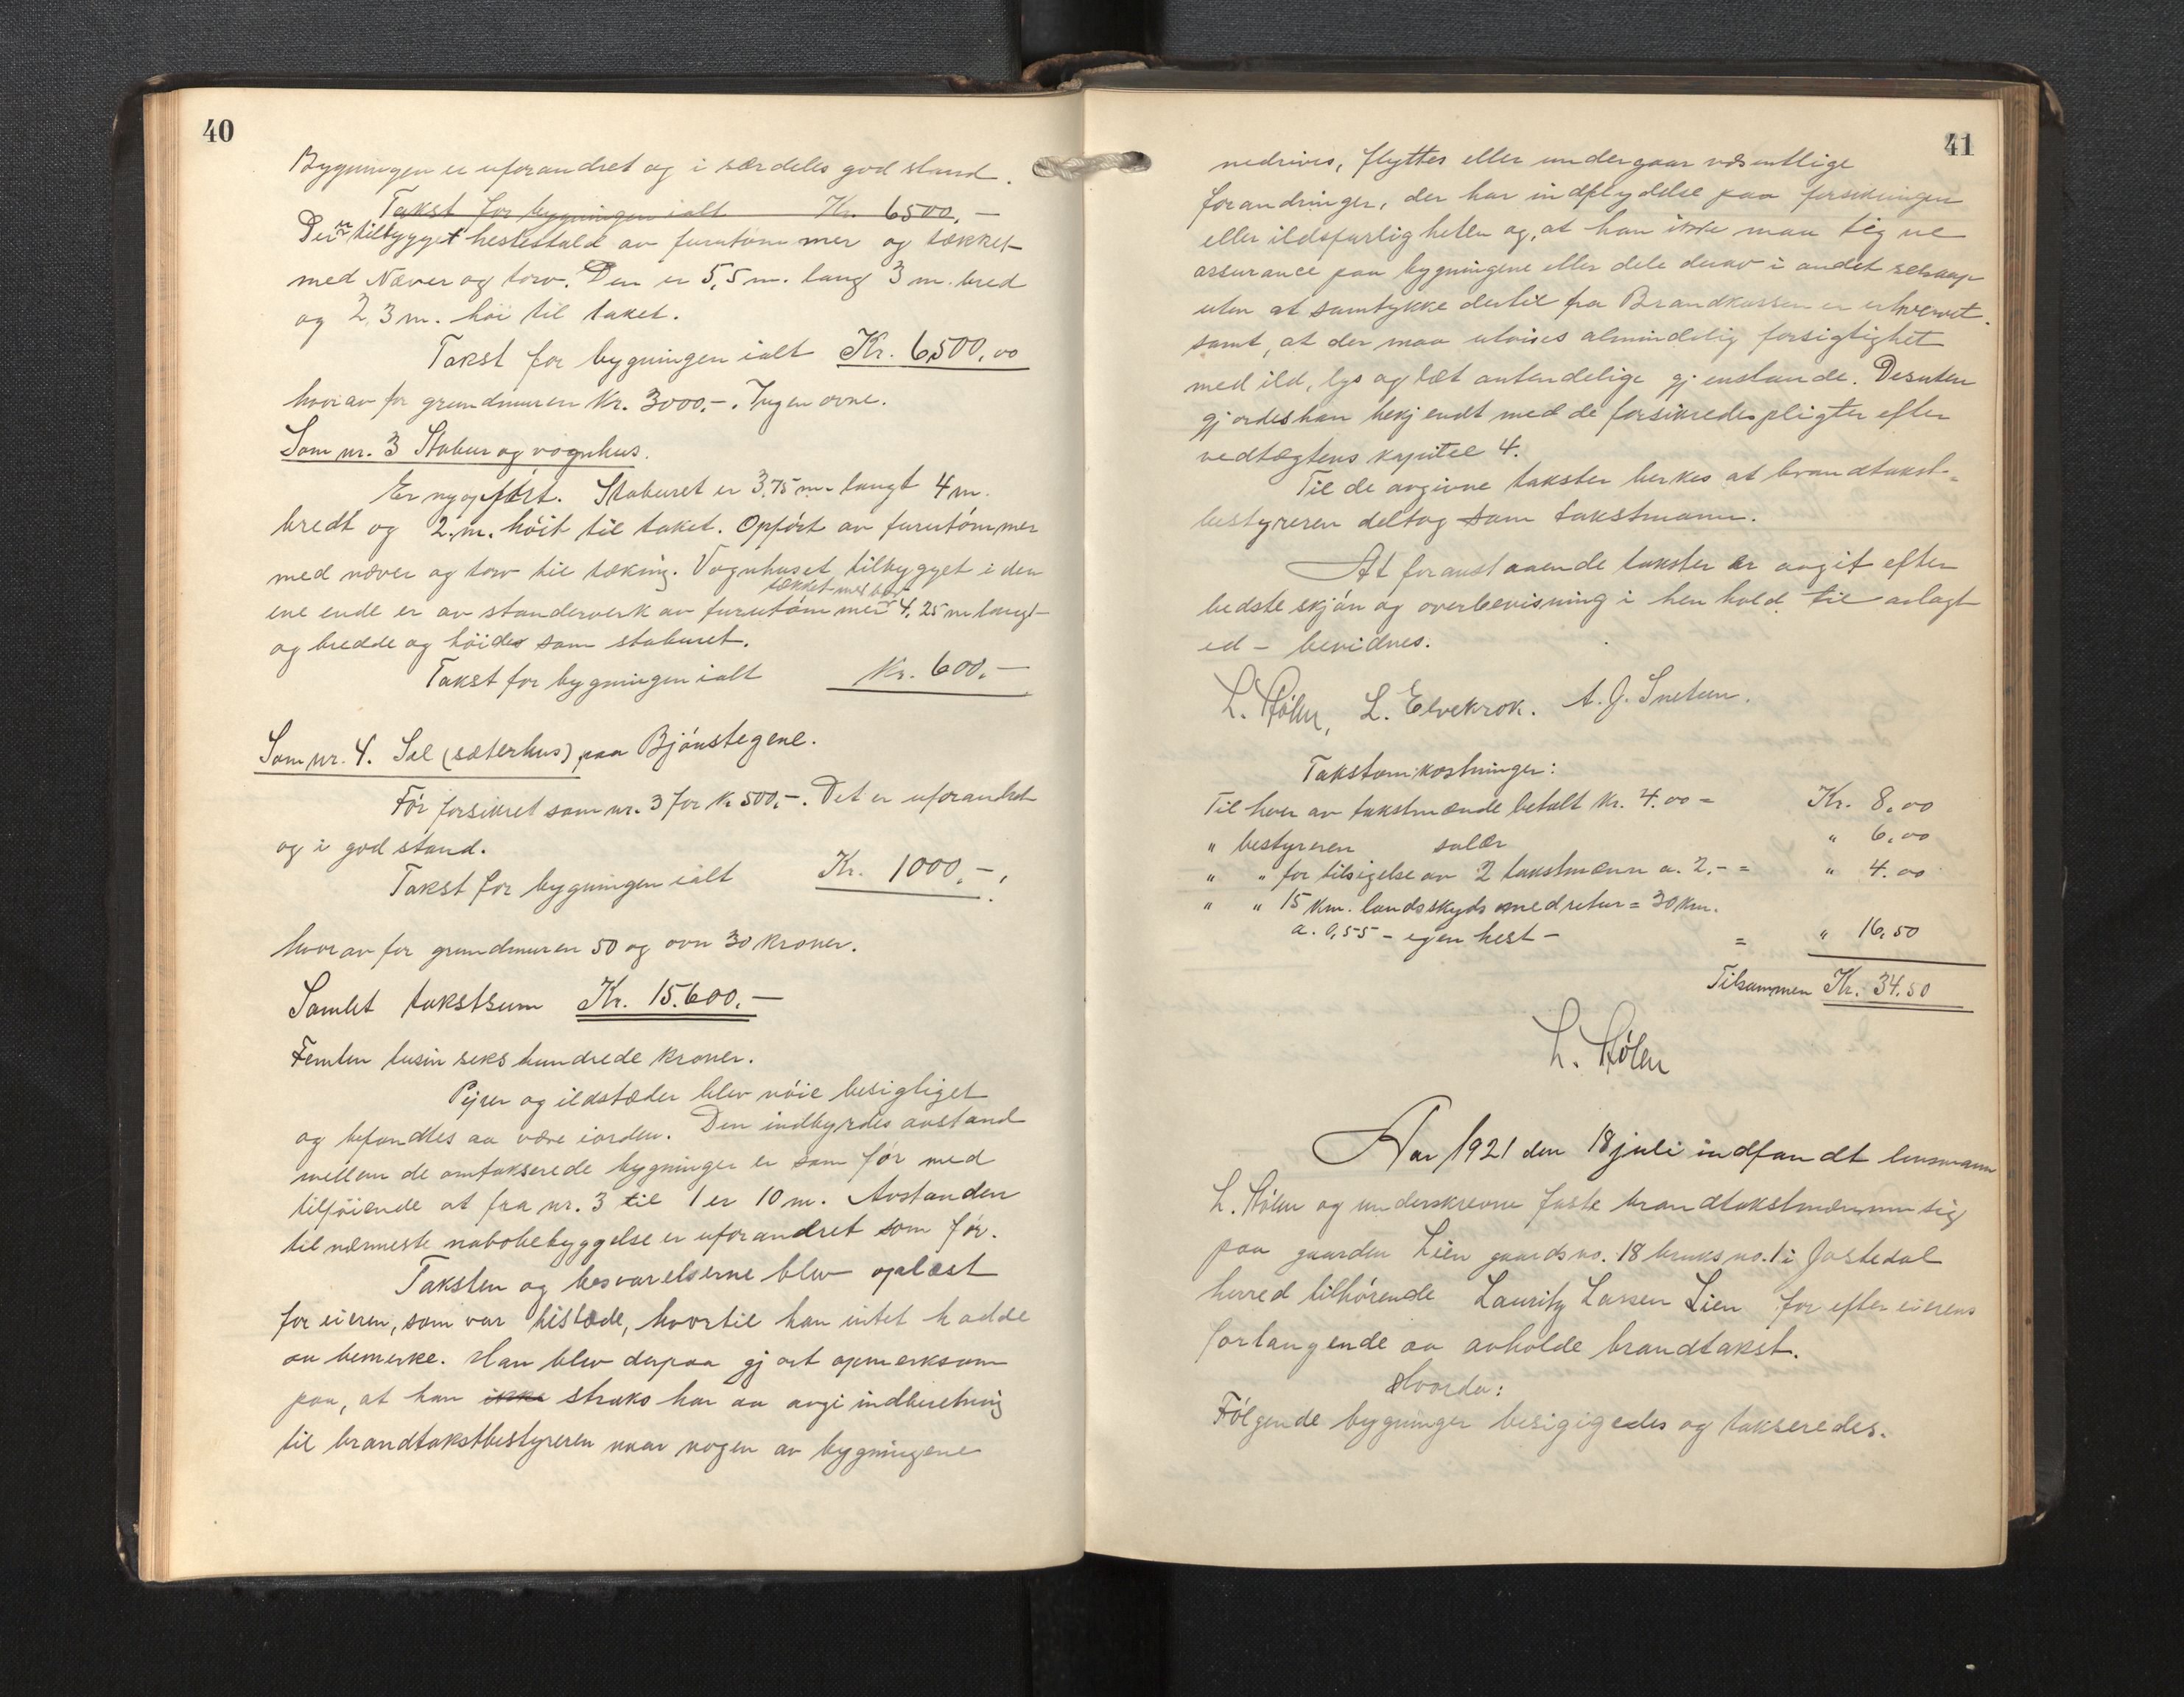 40
Bygningen er uforandret og i særdeles god stand.
Takst for bygningen ialt Kr. 6500.-
Der er tilbygget hestestald av furutømmer og tækket
med Næver og torv. Den er 5,5 m. lang 3 m. bred
og 2,3 m. höi til taket.
Takst for bygningen ialt Kr. 6500,00
hvorav for grundmuren Kr. 3000.-. Ingen ovne.
Som nr. 3 Stabur og vognhus.
Er nyopført. Staburet er 3,75 m. langt 4 m.
bredt og 2. m. höit til taket. Opført av furutömmer
med næver og torv til tæking. Vognhuset tilbygget i den
tækket med
ene ende er av standerverk av furutömmer 4,25 m langt
og bredde og höide som staburet.
Takst for bygningen ialt Kr. 600.-
Som nr. 4. Sel (sæterhus) paa Bjönstegene.
Før forsikret som nr. 3 for Kr 500,-. Det er uforandret
og i god stand.
Takst for bygningen ialt Kr. 1000.-.
hvorav for grundmuren 50 og ovn 30 kroner.
Samlet takstsum Kr. 15.600.-
Femten tusin seks hundrede kroner.
Pejser og ildstæder blev nöie besigtiget
og befandtes aa være iorden. Den indbyrdes avstand
mellem de omtakserede bygninger er som før med
tilföiende at fra nr. 3 til 1 er 10 m. Avstanden
til nærmeste nabobebyggelse er uforandret som før.
Taksten og besvarelserne blev oplæst
for eieren, som var tilstæde, hvortil han intet hadde
aa bemerke. Han blev derpaa gjort opmerksom
paa, at han ikke straks har aa avgi indberetning
til brandtakstbestyreren naar nogen av bygningene
41
nedrives, flyttes eller undergaar væsentlige
forandringer, der har indflydelse paa forsikringen
eller ildsfarligheten og, at han ikke maa tegne
assurance paa bygningene eller dele derav i andet selskap
uten at samtykke dertil fra Brandkassen er erhvervet.
samt, at der maa utvises almindelig forsigtighet
med ild, lys og læt antendelige gjenstande. Desuten
gjordes han bekjendt med de forsikredes pligter efter
vedtægtens kapitel 4.
Til de avgivne takster berkes at brandtakst-
bestyreren deltog som takstmann.
At foranstaaende takster er avgit efter
bedste skjön og overbevisning i henhold til avlagt
ed - bevidnes.
L. Stölen, L. Elvekrok. A. J. Snetun.
Takstomkostninger:
Til hver av takstmænde betalt Kr. 4.00 = Kr. 8,00
" bestyreren salær " 6,00
" " for tilsigelse av 2 takstmænn a. 2,- = " 4.00
" " 15 km. landsskyds med retur = 30 km.
a. 0,55 - egen hest - = " 16,50
Tilsammen Kr. 34.50
L. Stölen
Aar 1921 den 18 juli indfandt lensmann
L. Stölen og underskrevne faste brandtakstmænn sig
paa gaarden Lien gaardsno. 18 bruksno. 1 i Jostedal
herred tilhörende Lauritz Larsen Lien for efter eierens
forlangende aa avholde brandtakst.
Hvorda:
Fölgende bygninger besigigedes og takseredes.